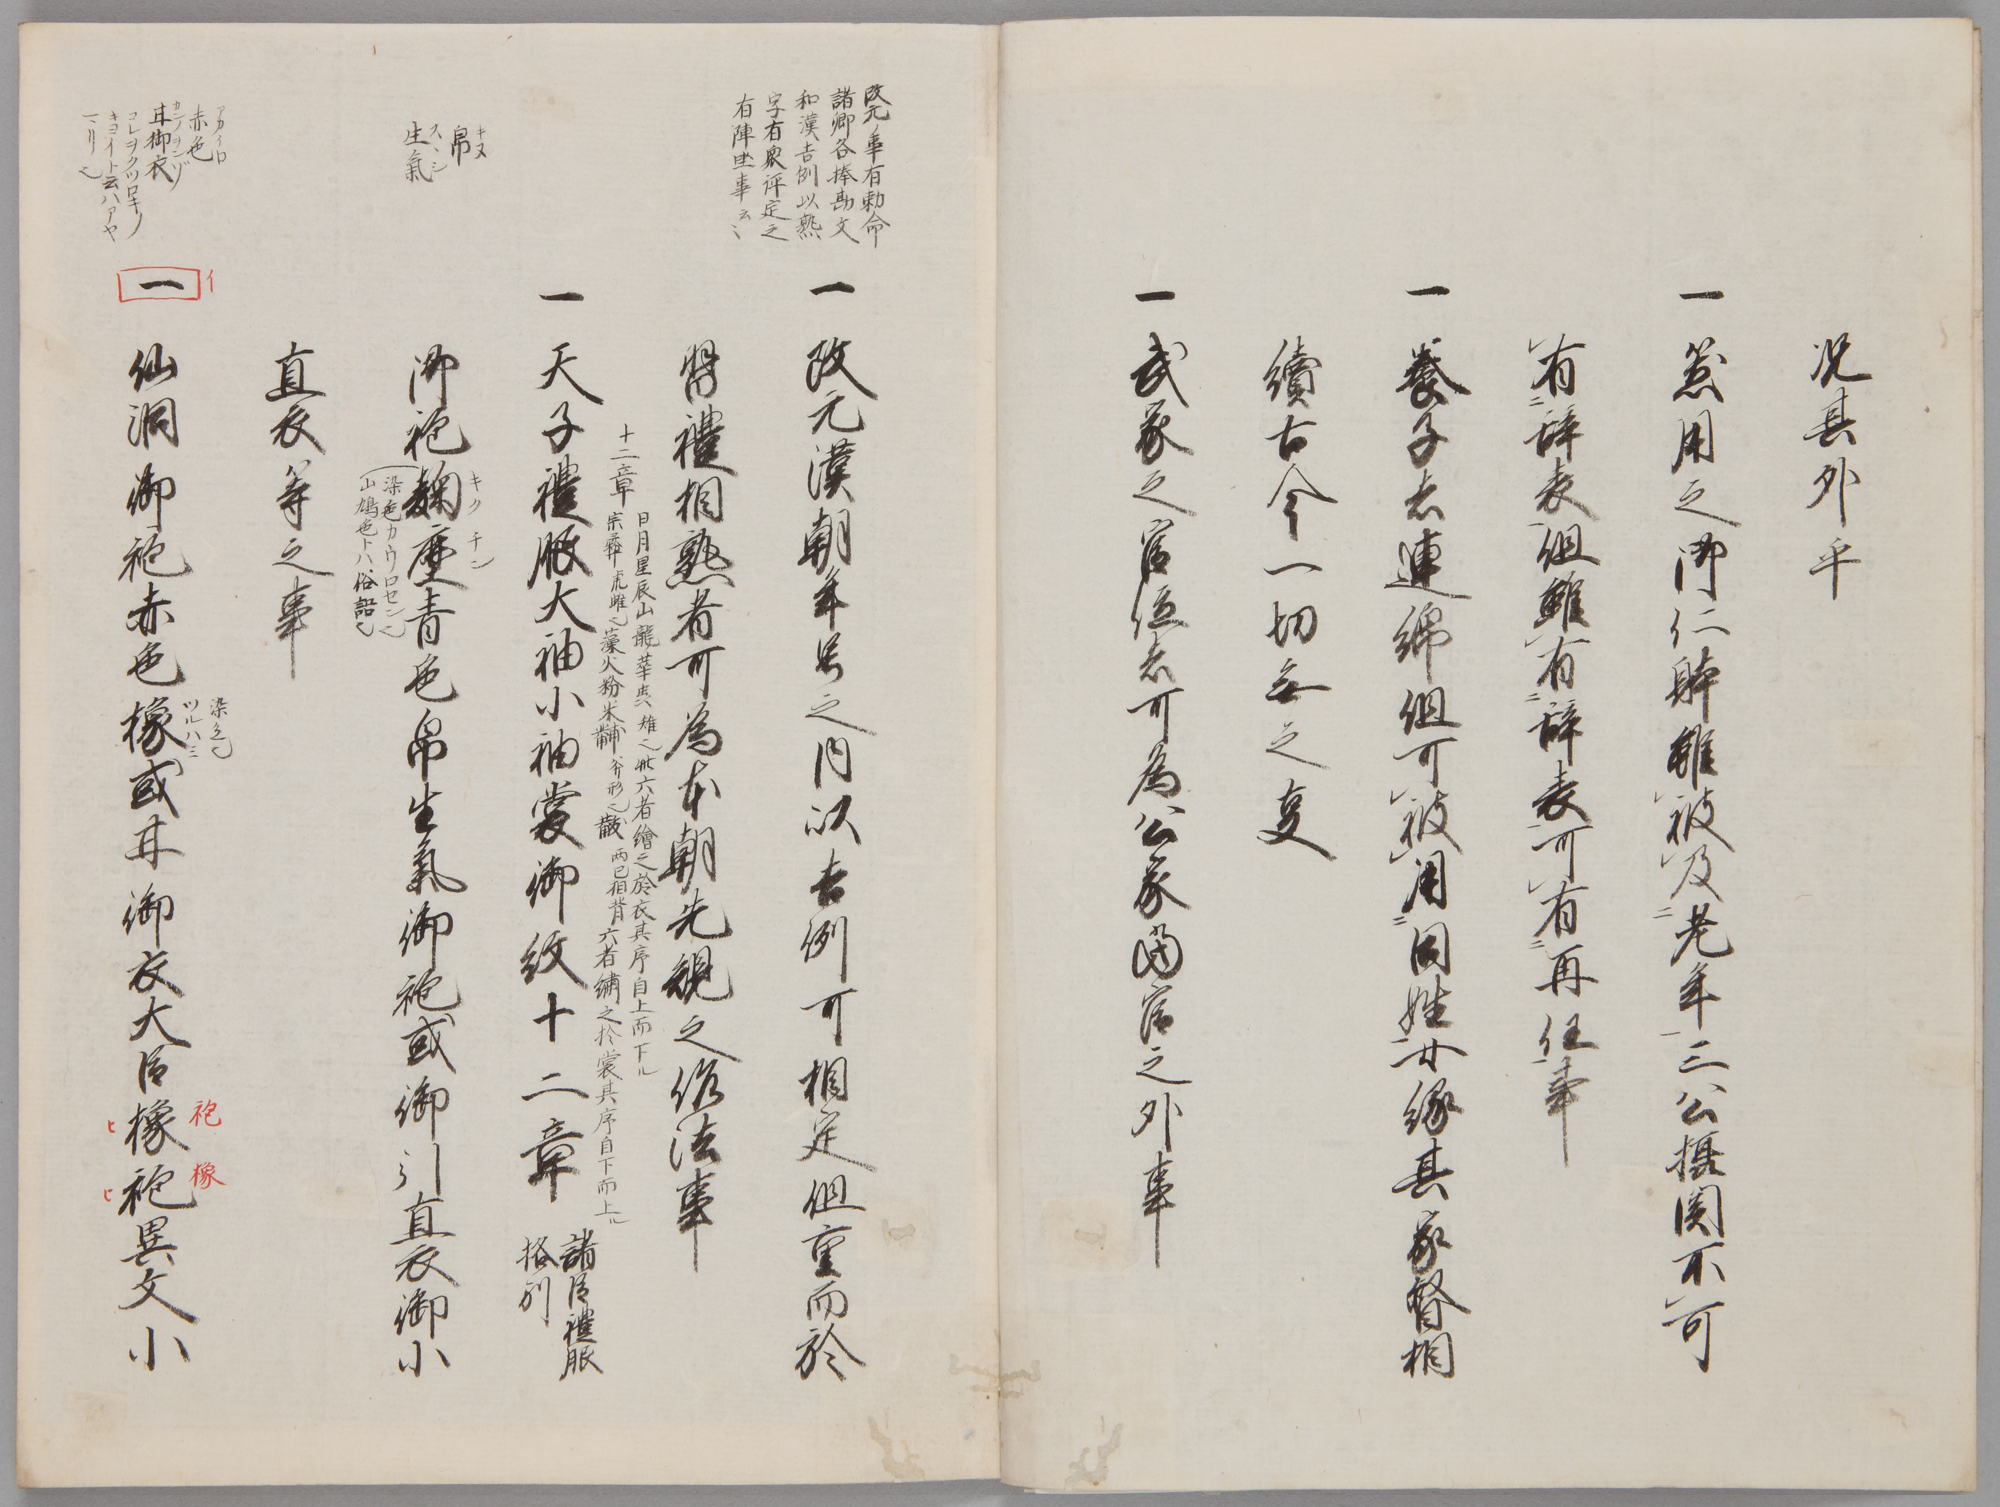 况其外乎
一 器用之御仁躰雖被及老年三公摂関不可
有辞表但雖有辞表可有再任事
一 養子者連綿但可被用同姓女縁其家督相
續古今一切無之事
一 武家之官位者可為公家當官之外事
改元ノ事有勅命
諸卿各捧勘文
和漢吉例以熟
字有衆评定之
有陣坐事云〻
一 改元漢朝年号之内以吉例可相定但重而於
習禮相熟者可為本朝先規之作法事
十二章 日月星辰山龍華虫雉也此六者繪之於衣其序自上而下ル
宗彝虎雖也藻火粉米黼斧形也黻両己相背六者繍之於裳其序自下而上ル
一 天子禮服大袖小袖裳御紋十二章
諸臣禮服
格別
帛 キヌ
生氣 スヽシ
御袍麹塵青色帛生氣御袍或御引直衣御小
キクチン
染色カウロセン也
山鳩色トハ俗語也
直衣等之事
アカイロ
赤色
カンノヲンゾ
井御衣
コレヲクツロキノ
キヨイト云ハアヤ
マリ也
イ
一 仙洞御袍赤色橡或井御衣大臣橡袍異文小
染色也
ツルハミ
袍
橡
ヒ
ヒ